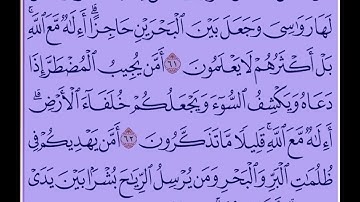 لَهَا رَوَٰسِىَ وَجَعَلَ بَيْنَ ٱلْبَحْرَيْنِ حَاجِزًا ۗ أَءِلَٰهٌ مَّعَ ٱللَّهِ ۚ
بَلْ أَكْثَرُهُمْ لَا يَعْلَمُونَ ٦١ أَمَّن يُجِيبُ ٱلْمُضْطَرَّ إِذَا
دَعَاهُ وَيَكْشِفُ ٱلسُّوٓءَ وَيَجْعَلُكُمْ خُلَفَآءَ ٱلْأَرْضِ ۗ
أَءِلَٰهٌ مَّعَ ٱللَّهِ ۚ قَلِيلًا مَّا تَذَكَّرُونَ ٦٢ أَمَّن يَهْدِيكُمْ فِى
ظُلُمَٰتِ ٱلْبَرِّ وَٱلْبَحْرِ وَمَن يُرْسِلُ ٱلرِّيَٰحَ بُشْرًۢا بَيْنَ يَدَىْ